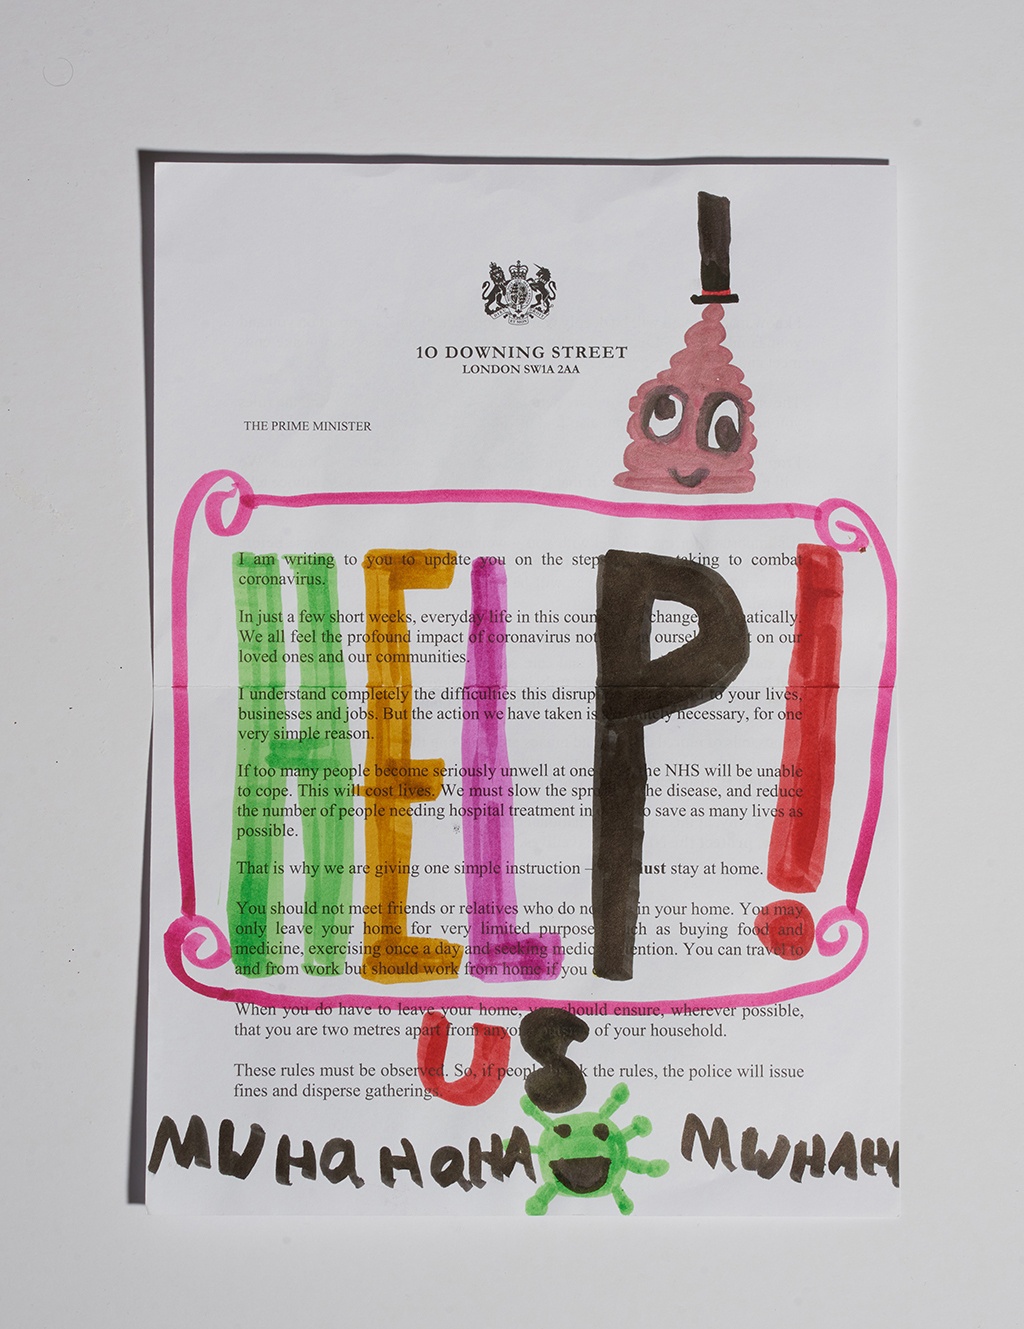 10 DOWNING STREET
LONDON SW1A 2AA
THE PRIME MINISTER
I am writing to you to update you on the to combat
coronavirus.
In just a few short weeks, everyday life in this
We all feel the profound impact of coronavirus on our
loved ones and our communities.
I understand completely the difficulties this to your lives,
businesses and jobs. But the action we have taken is necessary, for one
very simple reason.
If too many people become seriously unwell at one the NHS will be unable
to cope. This will cost lives. We must slow the the disease, and reduce
the number of people needing hospital treatment in to save as many lives as
possible.
That is why we are giving one simple instruction – must stay at home.
You should not meet friends or relatives who do in your home. You may
only leave your home for very limited such as buying food and
medicine, exercising once a day and seeking You can travel to
and from work but should work from home if you
HELP!
When you do have to leave your home, you should ensure, wherever possible,
that you are two metres apart from of your household.
US
These rules must be observed. So, if people the rules, the police will issue
fines and disperse gatherings.
MWHaHaHaHA MWHAHA